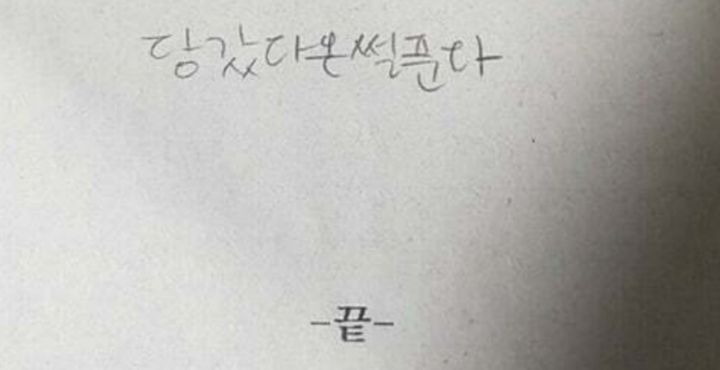 당갔다온썰푼다
-끝-